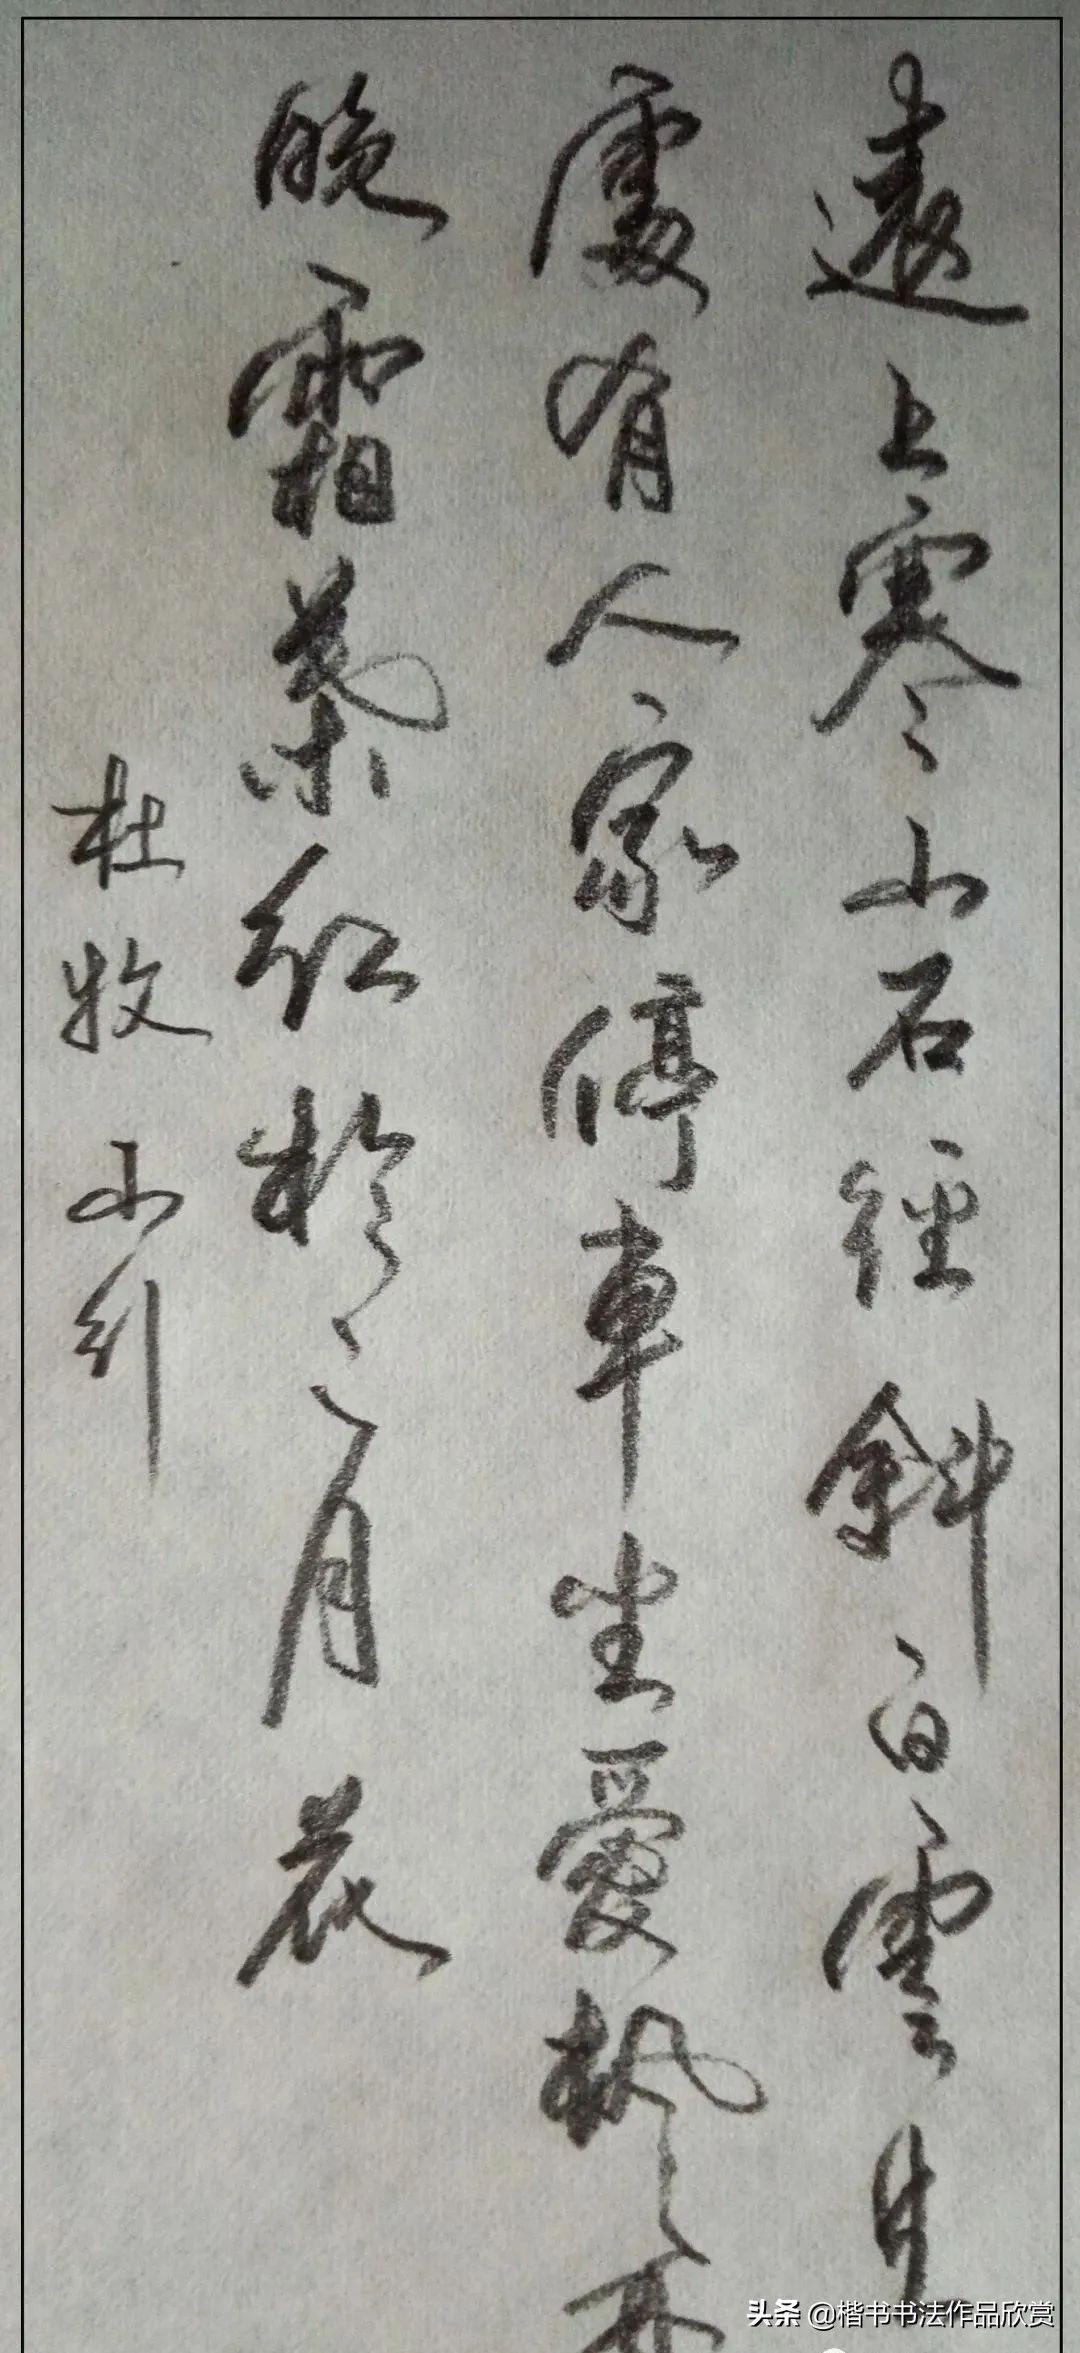 遠上寒山石徑斜白雲生
處有人家停車坐愛楓林
晚霜葉紅於二月花
杜牧山行
头条 @楷书书法作品欣赏